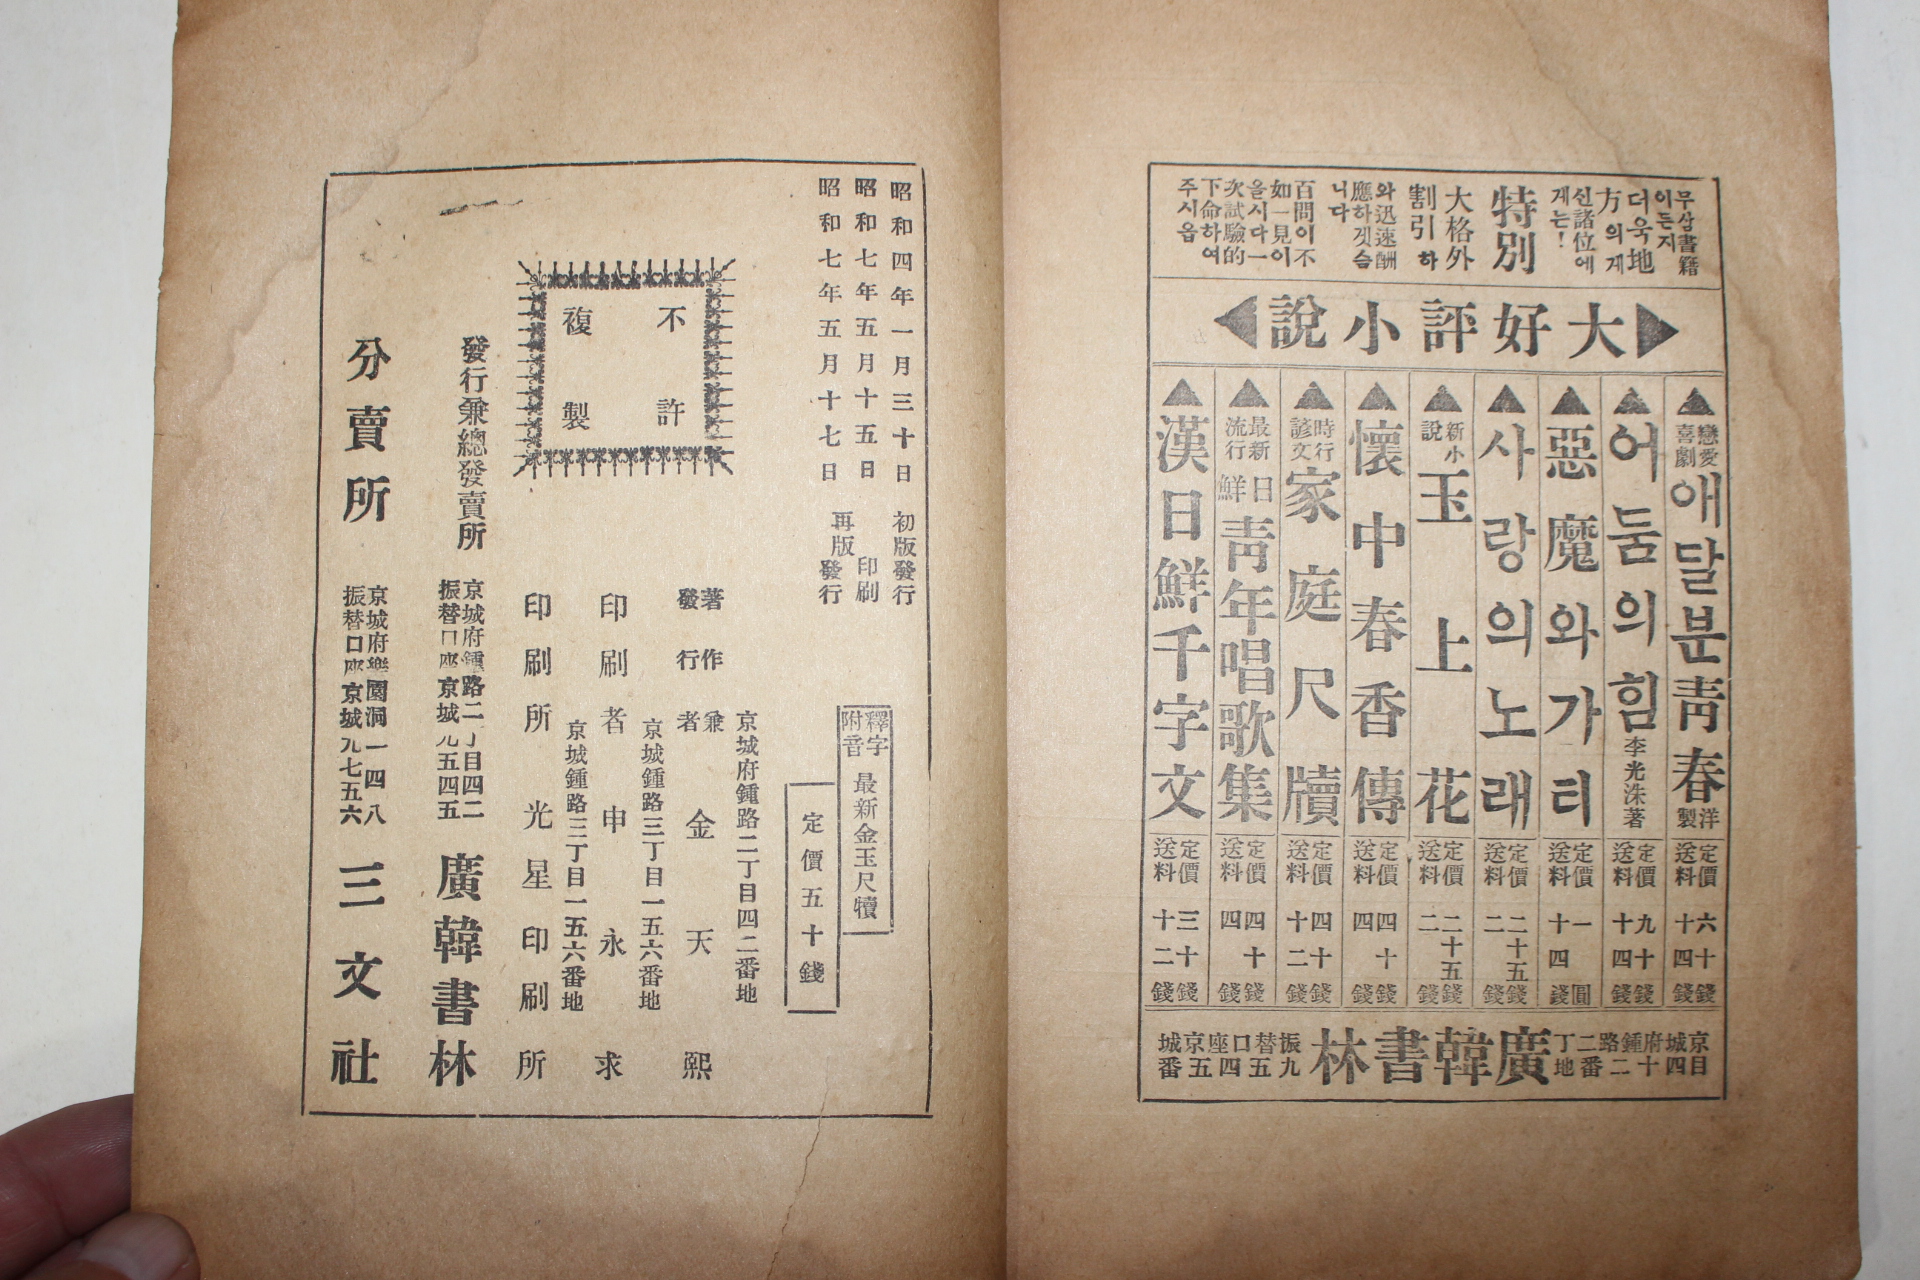 무삼書籍
이든지
더욱地
方의게
신諸位에
게는!
特別
大格外
割引하
와迅速酬
應하겟슴
니다
百問이不
如一見이
올시다一
次試驗的
下命하여
주시옵
大好評小說
▲戀愛喜劇 애달분靑春 洋製 定價六十錢 送料十四錢
▲어둠의힘 李光洙著 定價九十錢 送料十四錢
▲惡魔와가티 定價一圓 送料十四錢
▲사랑의노래 定價二十五錢 送料二錢
▲新小說 玉上花 定價二十五錢 送料二錢
▲懷中春香傳 定價四十錢 送料四錢
▲時行諺文 家庭尺牘 定價四十錢 送料十二錢
▲最新流行 日鮮靑年唱歌集 定價四十錢 送料四錢
▲漢日鮮千字文 定價三十錢 送料十二錢
京城府鍾路二丁
目四十二番地
廣韓書林
振替口座京城
九五四五番
昭和四年一月三十日 初版發行
昭和七年五月十五日 印刷
昭和七年五月十七日 再版發行
釋字附音 最新金玉尺牘
定價五十錢
不許
複製
京城府鍾路二丁目四二番地
著作兼發行者 金天熙
京城鍾路三丁目一五六番地
印刷者 申永求
京城鍾路三丁目一五六番地
印刷所 光星印刷所
發行兼總發賣所
京城府鍾路二丁目四二
振替口座京城九五四五
廣韓書林
分賣所
京城府樂園洞一四八
振替口座京城九七五六
三文社